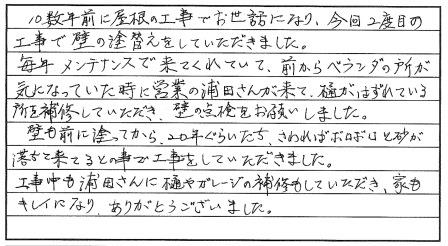 10数年前に屋根の工事でお世話になり、今回2度目の
工事で壁の塗替えをしていただきました。
毎年メンテナンスで来てくれていて、前からベランダの戸が
気になっていた時に営業の浦田さんが来て、樋がはずれている
所を補修していただき、壁の点検をお願いしました。
壁も前に塗ってから、20年ぐらいたち、さわればボロボロと砂が
落ちて来てるとの事で工事をしていただきました。
工事中も浦田さんに樋やガレージの補修もしていただき、家も
キレイになり、ありがとうございました。